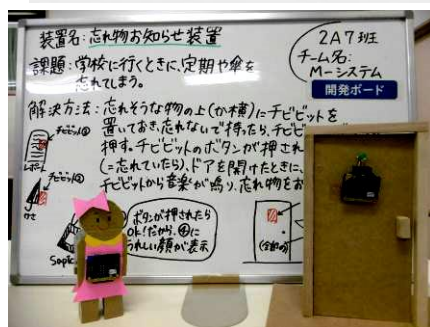 装置名:忘れ物お知らせ装置
2A7班
チーム名:
M-システム
開発ボード
課題:学校に行くときに、定期や傘を
忘れてしまう。
解決方法:忘れそうな物の上(か横)にチビビットを
置いておき、忘れないで持ったら、チビビ
押す。チビビットのボタンが押され
(=忘れていたら)、ドアを開けたときに、
チビビットから音楽が鳴り、忘れ物をお
チビビット①
チビビット②
かさ
ボタンが押されたら
OK!だから、④に
うれしい顔が表示